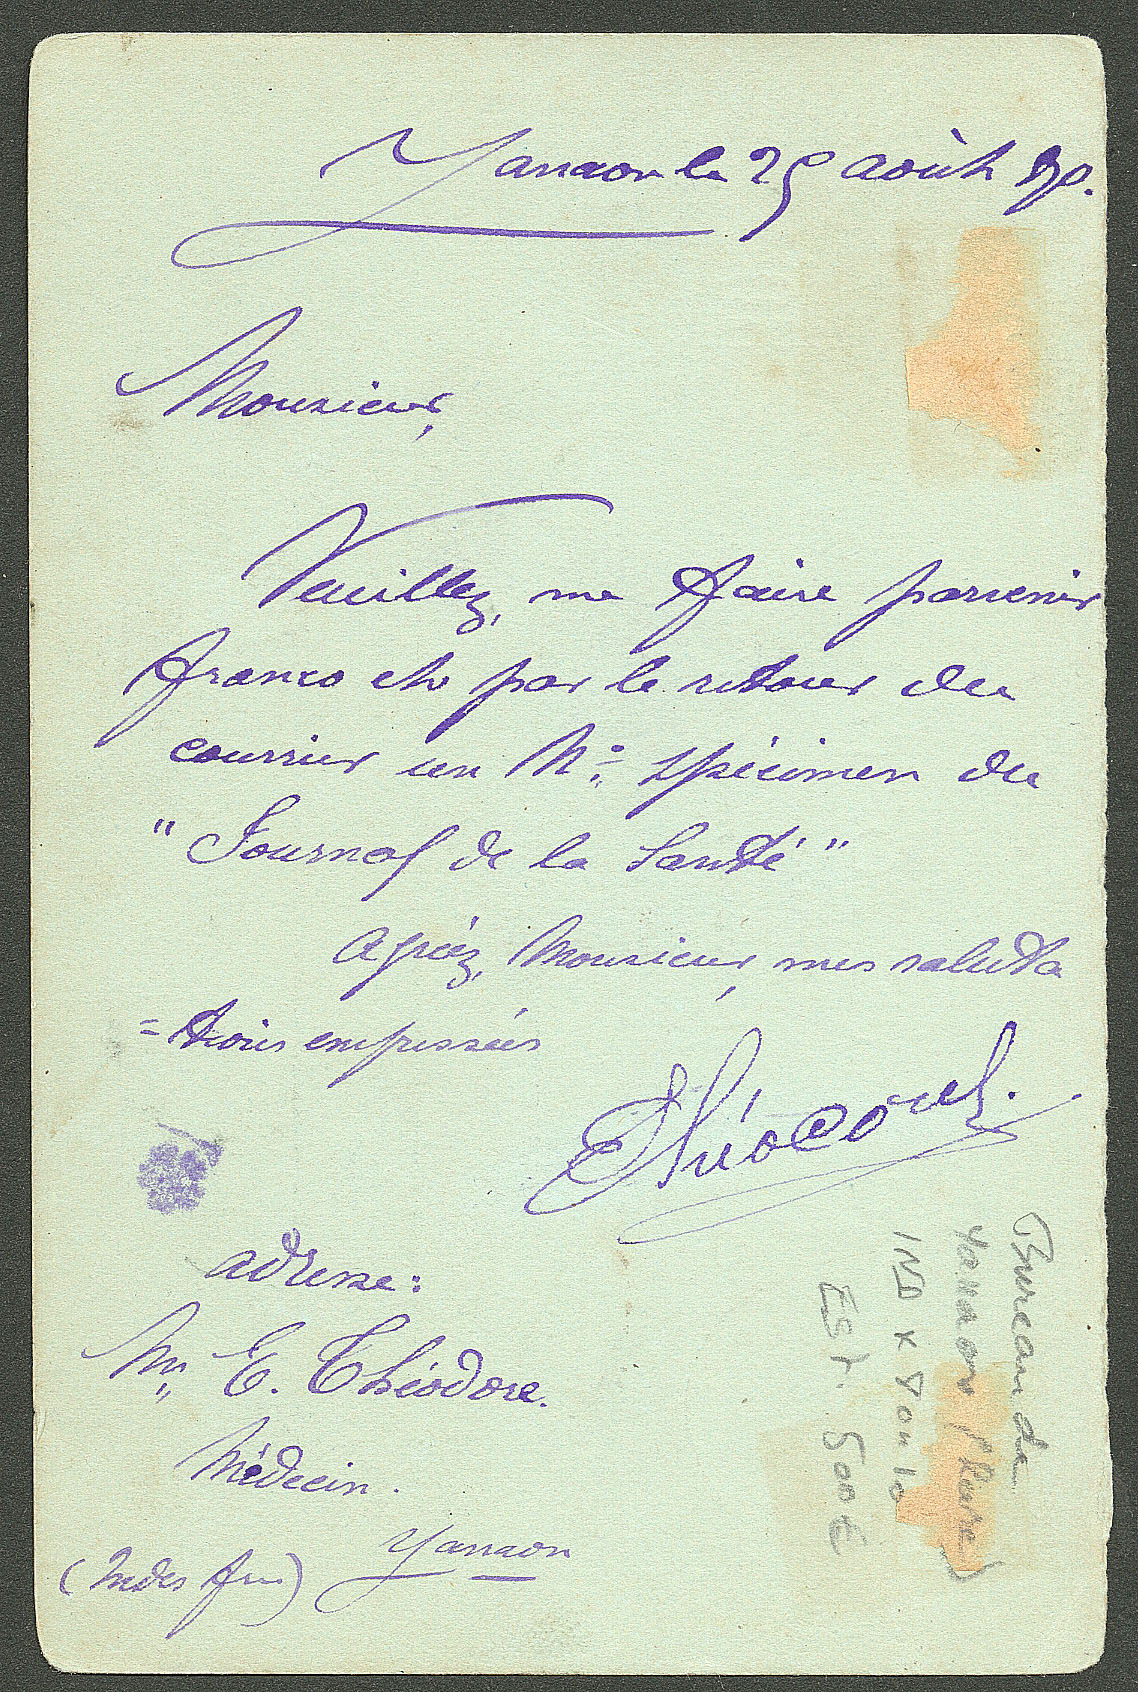 Yanaon le 25 août 90.
Monsieur,
Veuillez, me faire parvenir
franco et par le retour du
courrier un No spécimen du
" Journal de la Santé "
Agréez, Monsieur, mes saluta
= tions empressées
EThéodore.
adresse:
Mr, E. Théodore.
Médecin.
Yanaon
(Indes fr)
Bureau de
Yanaon
IND x 8 ou 10
Est. 500 €